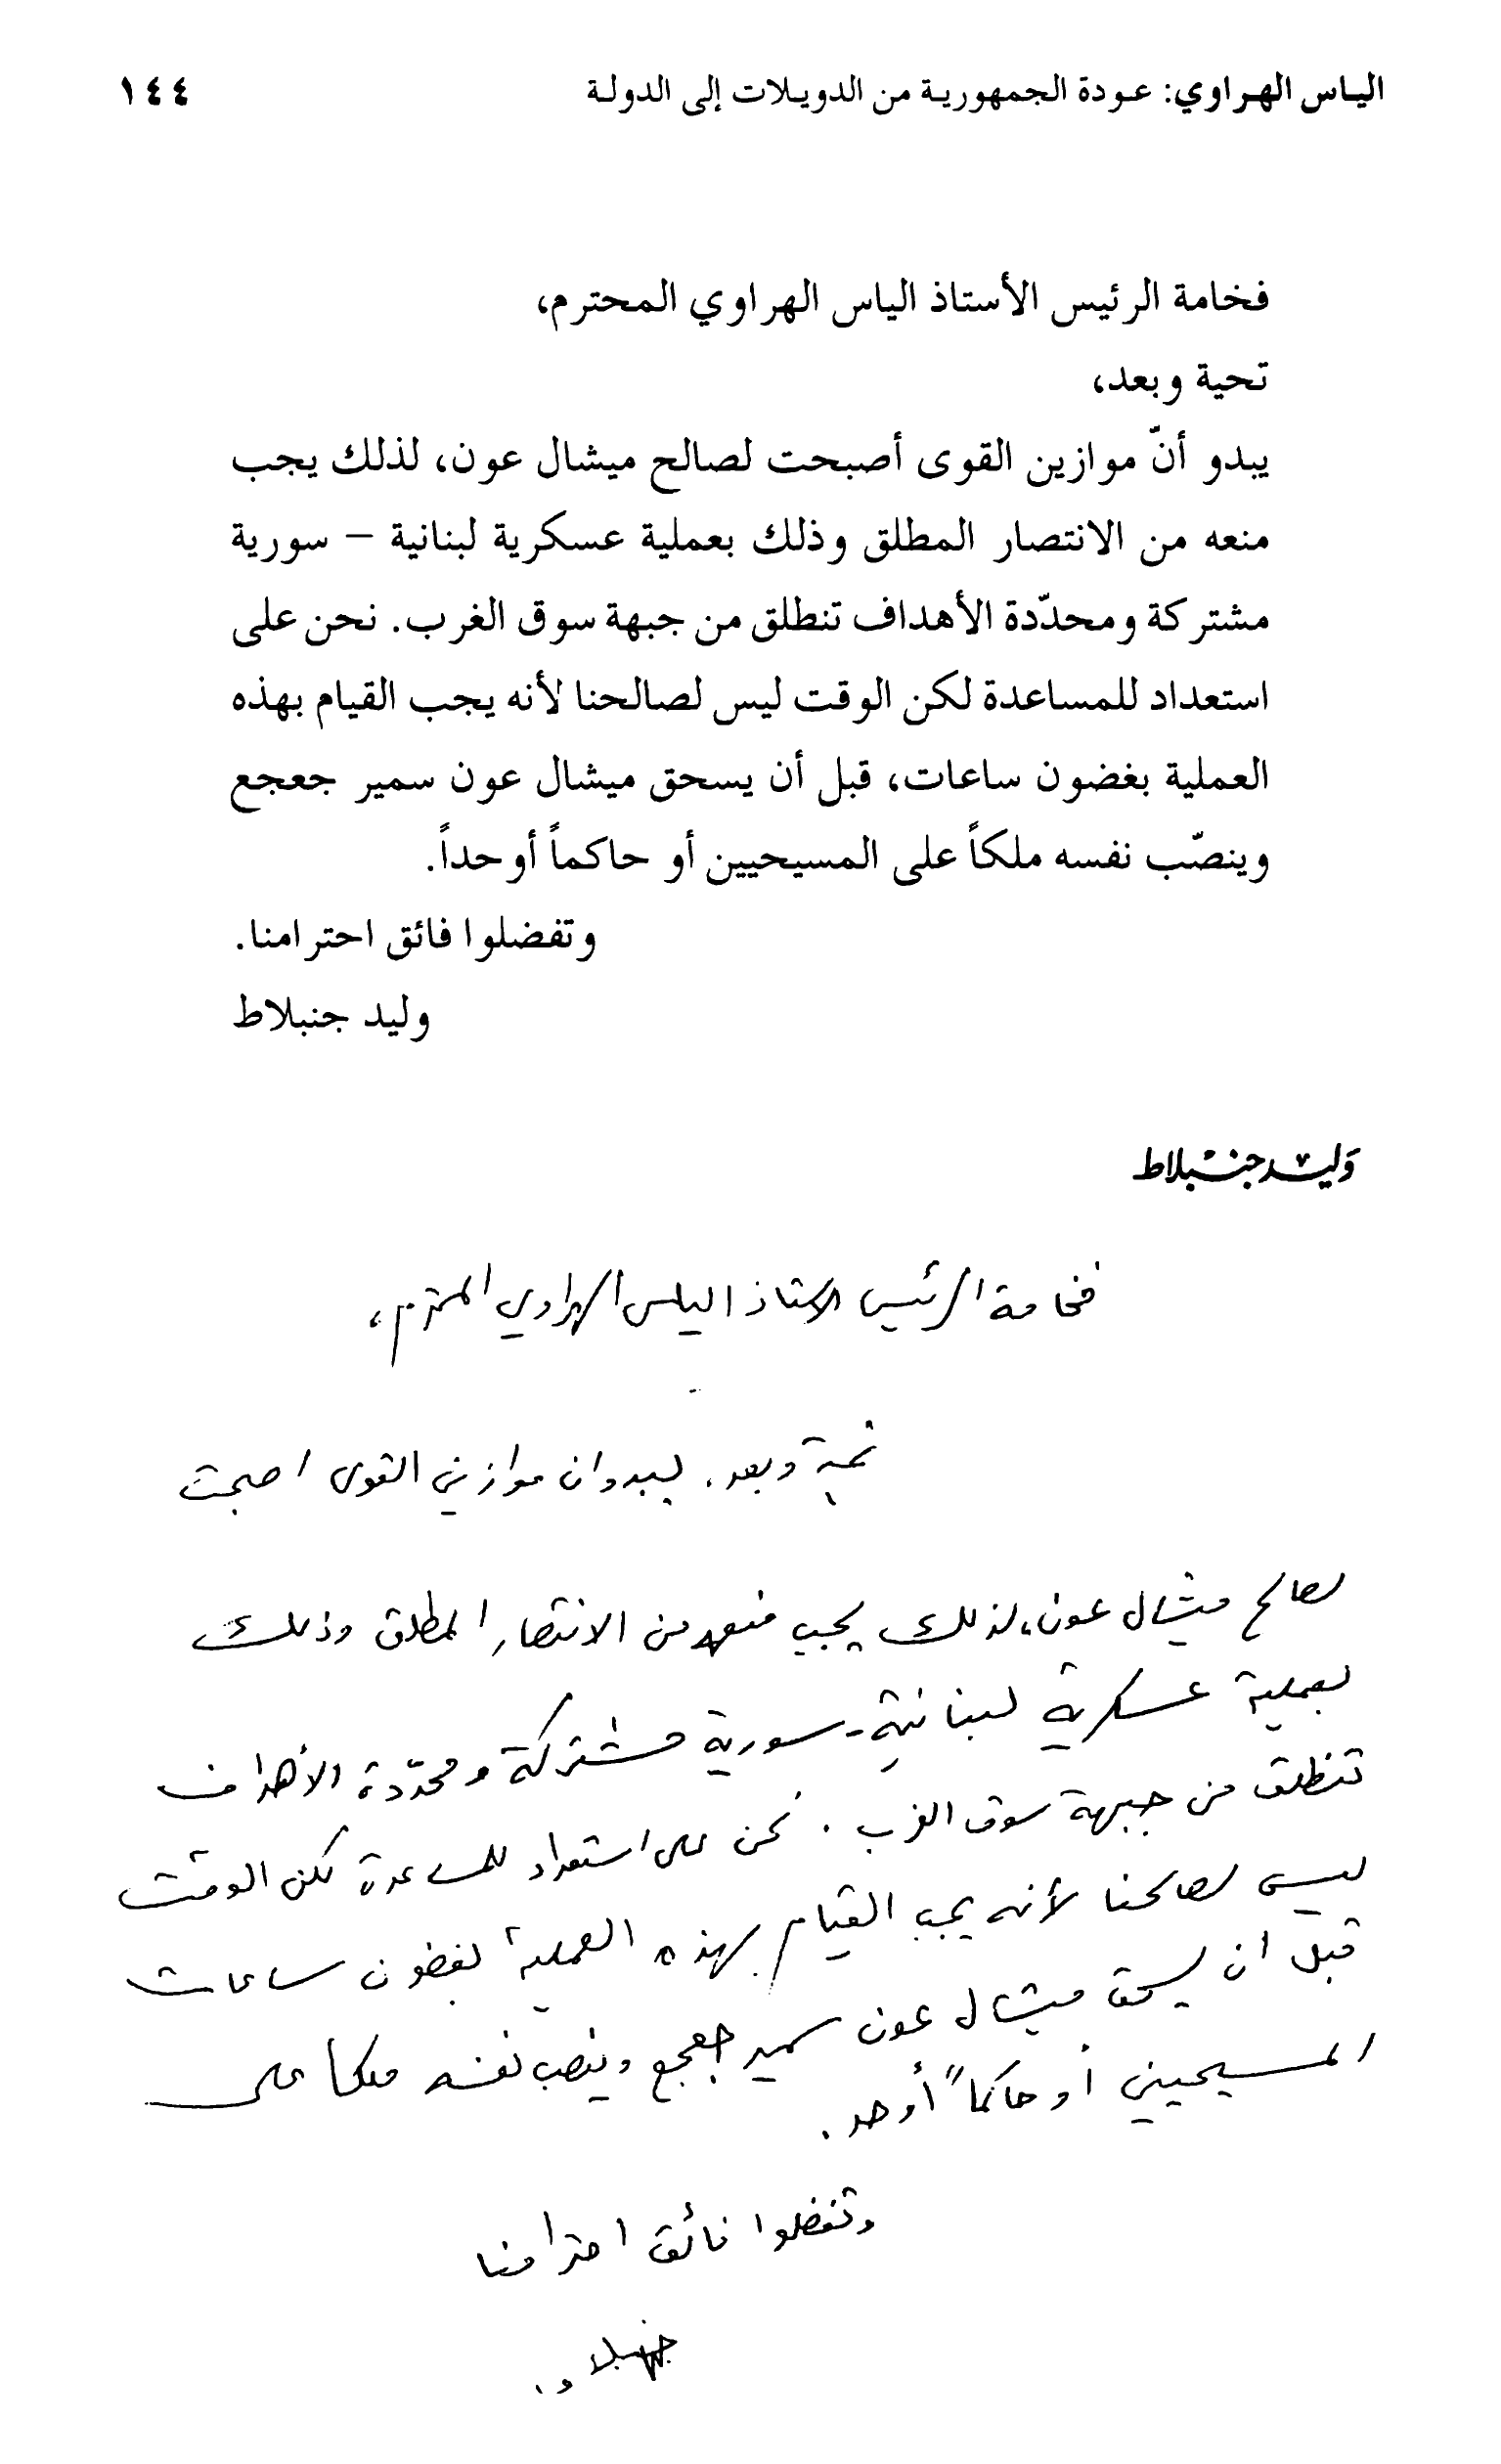 الياس الهراوي: عودة الجمهورية من الدويلات إلى الدولة ١٤٤
فخامة الرئيس الأستاذ الياس الهراوي المحترم،
تحية وبعد،
يبدو أنّ موازين القوى أصبحت لصالح ميشال عون، لذلك يجب
منعه من الانتصار المطلق وذلك بعملية عسكرية لبنانية – سورية
مشتركة ومحدّدة الأهداف تنطلق من جبهة سوق الغرب. نحن على
استعداد للمساعدة لكن الوقت ليس لصالحنا لأنه يجب القيام بهذه
العملية بغضون ساعات، قبل أن يسحق ميشال عون سمير جعجع
وينصّب نفسه ملكاً على المسيحيين أو حاكماً أوحداً.
وتفضلوا فائق احترامنا.
وليد جنبلاط
وَليد جنبلاط
فخامة الرئيس الاستاذ الياس الهراوي المحترم،
تحية وبعد. يبدو ان موازين القوى اصبحت
لصالح ميشال عون، لذلك يجب منعه من الانتصار المطلق وذلك
بعملية عسكرية لبنانية - سورية مشتركة ومحدّدة الأهداف
تنطلق من جبهة سوق الغرب . نحن على استعداد للمساعدة لكن الوقت
ليس لصالحنا لأنه يجب القيام بهذه العملية بغضون ساعات
قبل ان يسحق ميشال عون سمير جعجع وينصب نفسه ملكا على
المسيحيين أو حاكماً أوحد .
وتفضلوا فائق احترامنا